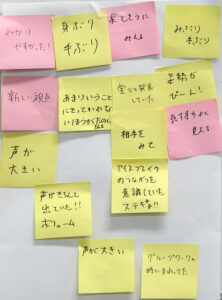 わかり
やすかった!
身ぶり
手ぶり
楽しそうに
みえる
みぶり
手ぶり
新しい視点
あまりいうこと
にとっていわな
いほうが
堂々と発表
していた
姿勢が
ぴーん!
相手を
みて
気持ちよく
見える
声が
大きい
アイスブレイク
のつながりを
意識していて
ステキ!!
声がきちんと
出ていた!!
ボリューム
声が大きい
グループワークの
時にまわってた